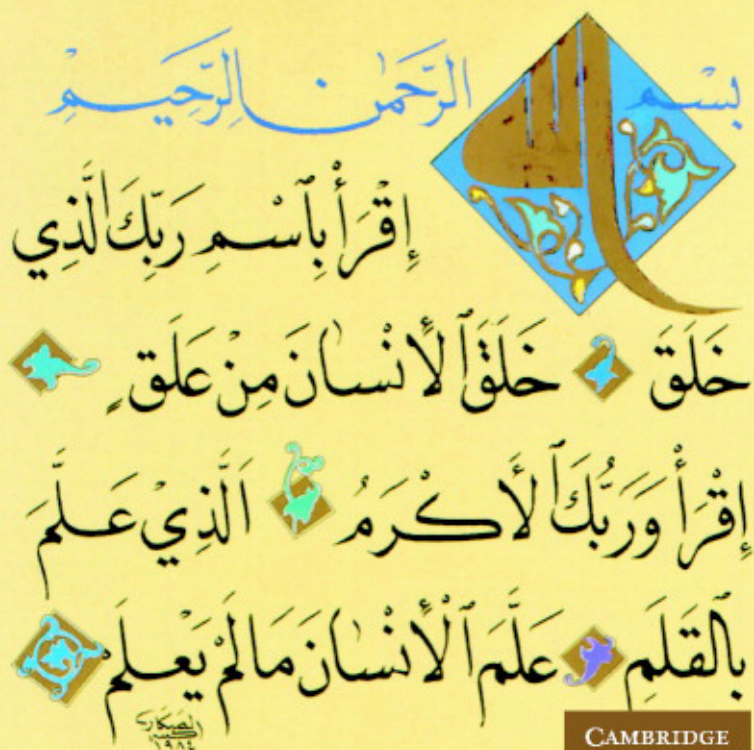 بسْم الله الرَّحمٰن الرَّحِيمِ
إِقْرَأْ بِٱسْمِ رَبِّكَ الَّذِي
خَلَقَ خَلَقَ ٱلأنْسٰانَ مِنْ عَلَقٍ
إِقْرَأْ وَرَبُّكَ ٱلأَكْرَمُ اَلَّذِيْ عَلَّمَ
بِٱلقَلَمِ عَلَّمَ ٱلْأنْسٰانَ مَا لَمْ يَعْلَمْ
١٩٨٤
CAMBRIDGE